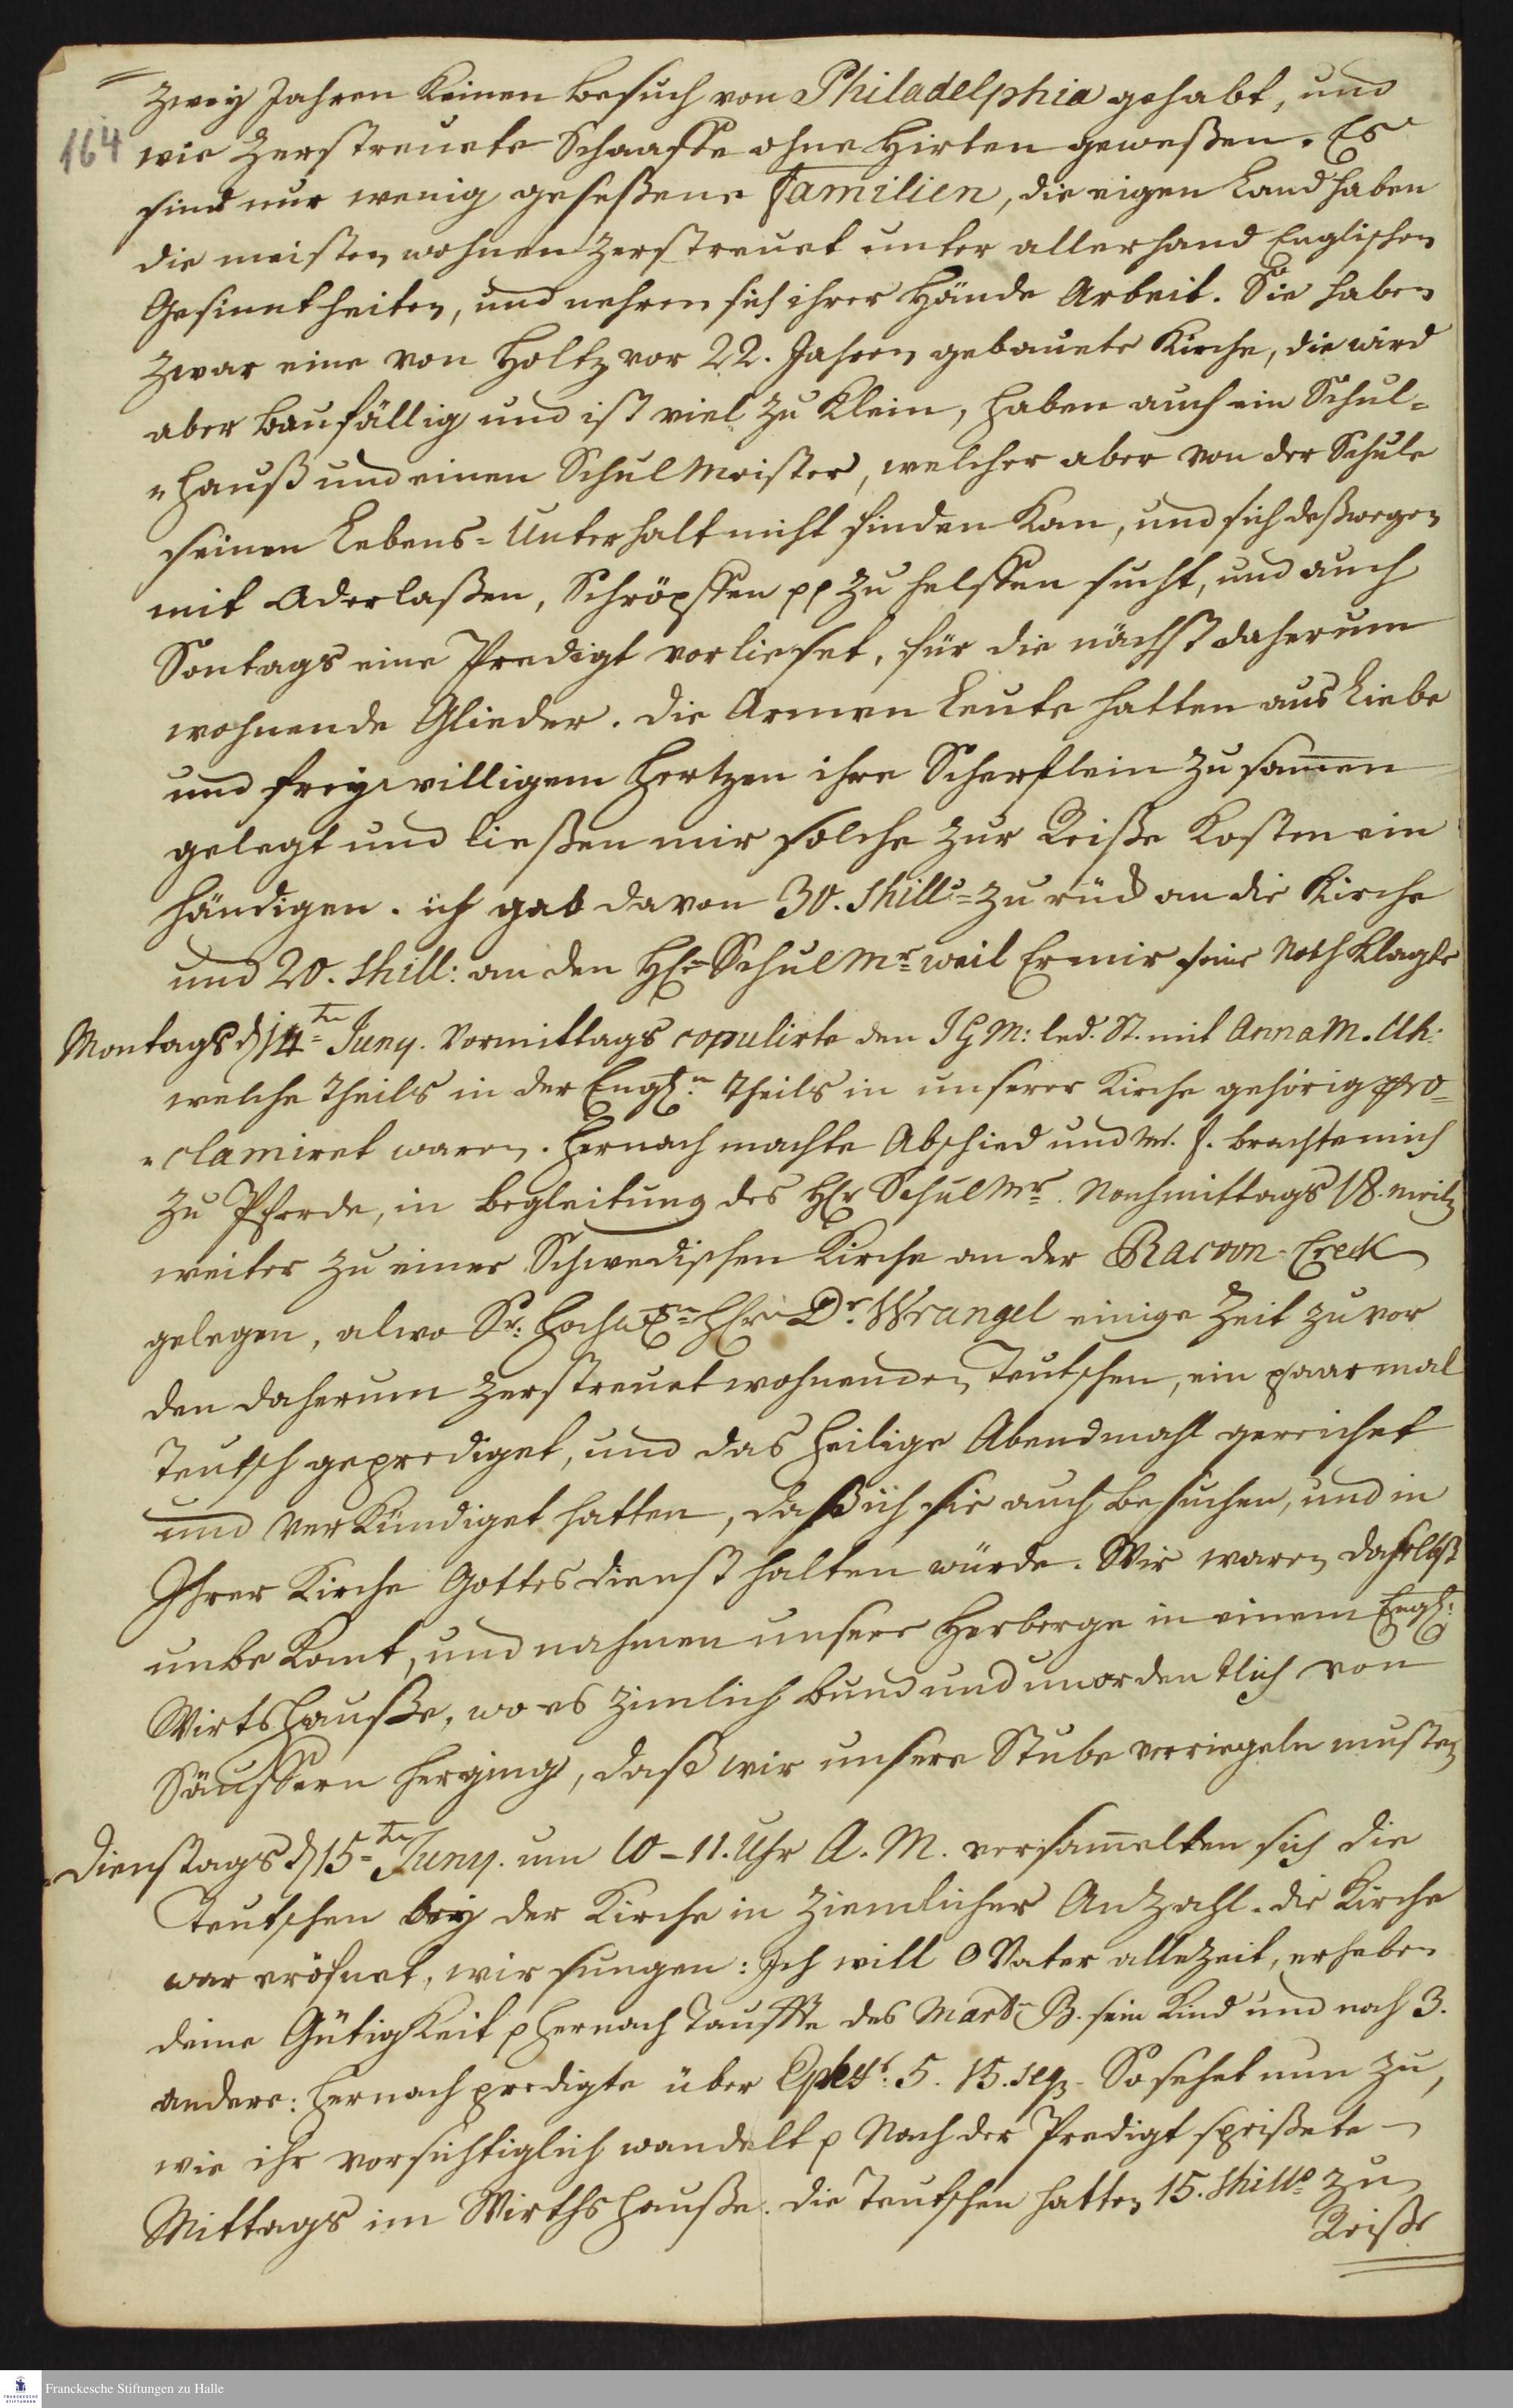 164
zwey Jahren keinen besuch von Philadelphia gehabt, und
wie zerstreuete Schaaffe ohne Hirten geweßen. Es
sind nur wenig geseßene Familien, die eigen Land haben
die meisten wohnen zerstreuet unter allerhand Englischen
Gesinntheiten, und nehren sich ihrer Hände Arbeit. Sie haben
zwar eine von Holtz vor 22. Jahren gebauete Kirche, die wird
aber baufällig und ist viel zu klein, haben auch ein Schul=
"hauß und einen Schul Meister, welcher aber von der Schule
seinen Lebens=Unterhalt nicht finden kan, und sich deßwegen
mit Aderlaßen, Schröpffen pp zu helffen sucht, und auch
Sontags eine Predigt vorlieset, für die nächst daherum
wohnende Glieder. die Armen Leute hatten aus Liebe
und freywilligem Hertzen ihre Scherflein zusam̅en
gelegt und ließen mir solche zur Reiße Kosten ein
händigen. ich gab davon 30. Shills= zurück an die Kirche
und 20. Shill: an den HE. Schul Mr= weil Er mir seine Noth klagte
Montags d 14=ten Juny. Vormittags copulirte den JGM: led. St. mit Anna M. Uh:
welche theils in der Engl:n theils in unserer Kirche gehörig pro=
"clamiret waren. Hernach machte Abschied und M. F. brachte mich
zu Pferde, in begleitung des HEr Schul Mr=. Nachmittags 18. meilen
weiter zu einer Schwedischen Kirche an der Racoon=Creck
gelegen, alwo Sr: HochwE=n HEr Dr. Wrangel einige Zeit zuvor
den daherum zerstreuet wohnenden Teutschen, ein paar mal
Teutsch geprediget, und das heilige Abendmahl gereichet
und verkündiget hatten, daß ich sie auch besuchen, und in
Ihrer Kirche Gottesdienst halten würde. Wir waren daselbst
unbekant, und nahmen unsere Herberge in einem Engl:
Wirtshauße, wo es zimlich bund und unordentlich von
Säuffern herging, daß wir unsere Stube verriegeln musten
Dienstags d 15=ten Juny. um 10-11. Uhr A. M. versam̅elten sich die
Teutschen bey der Kirche in ziemlicher Anzahl. die Kirche
war eröfnet, wir sungen: Ich will o Vater allezeit, erheben
deine Gütigkeit p hernach Tauffte des Martn B. sein Kind und noch 3.
andere: hernach predigte über Ephes: 5. 15. seq. So sehet nun zu,
wie ihr vorsichtiglich wandelt p Nach der Predigt speißete
Mittags im Wirthshauße. die Teutschen hatten 15. Shills= zu
Reiße
Franckesche Stiftungen zu Halle